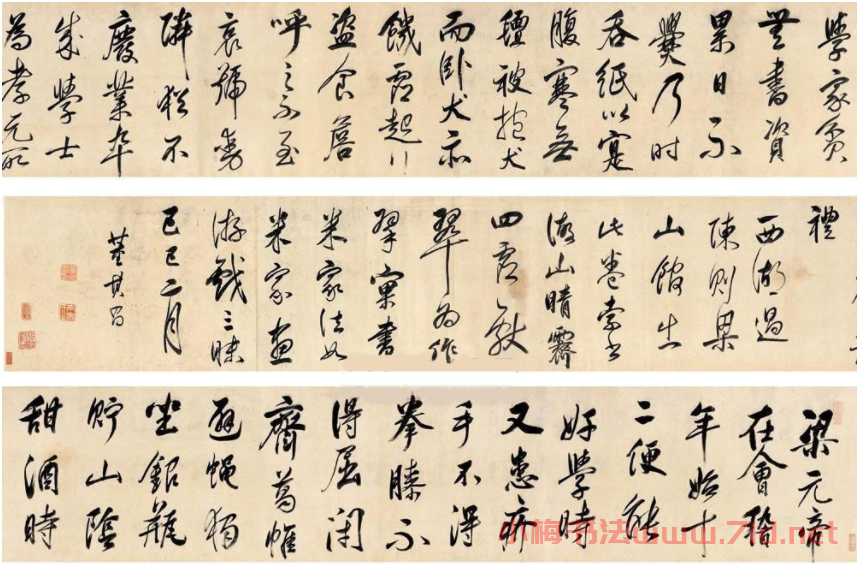 學家貧
無書資
累日不
爨乃时
吞紙以寔
腹寒無
氊被抱犬
而卧犬亦
饑虛起行
盜食詹
呼之不至
哀號動
隣猶不
廢業卒
成學士
為孝元所
禮
西湖過
陳則梁
山館出
此卷索書
湖山晴霽
四虛嵐
翠為作
擘窠書
米家法如
米家画
游戲三昧
己巳二月
董其昌
梁元帝
在會稽
年始十
二便能
好學時
又患疥
手不得
拳膝不
得屈閑
齋葛帷
避蠅獨
坐銀甌
貯山陰
甜酒時
小梅书法www.7ld.net